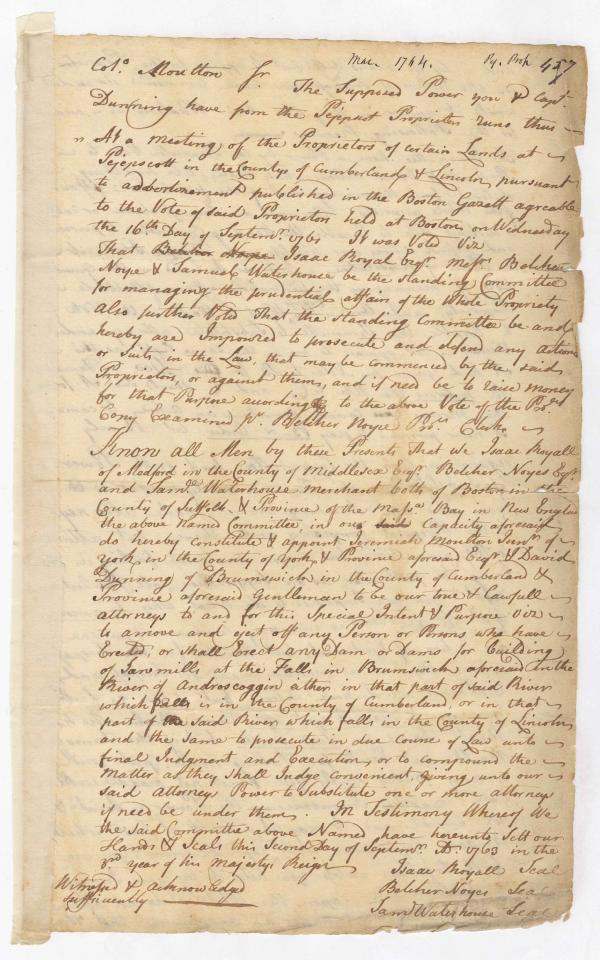 Mar. 1764. Py. Prop 457
Colo. Moulton Jr. The Supposed Power you & Capt.
Dunning have from the Pejepscot Proprietors runs thus
At a meeting of the Proprietors of certain Lands at
Pejepscott in the Countys of Cumberland & Lincoln, pursuant
to advertizement published in the Boston Gazett agreable
to the Vote of said Proprietors held at Boston, on Wednesday
the 16th Day of Septemr. 1761 It was Voted Viz
That Belcher Noyse Isaac Royal Esqr. Messrs. Belcher
Noyse & Samuel Waterhouse be the Standing Committee
for managing the prudential affairs of the Whole Propriety
also further Voted That the standing Committee be and
hereby are Impowred to prosecute and defend any actions
or suits in the Law, that may be commenced by the said
Proprietors, or against them, and if need be to raise money
for that Purpose according to the above Vote of the
Copy Examined pr. Belcher Noyse Clerk
Know all Men by these Presents That we Isaac Royall
of Medford in the County of Middlesex Esqr. Belcher Noyes Esqr
and Saml. Waterhouse Merchant both of Boston in the
County of Suffolk & Province of the Massa. Bay in New England
the above named Committee, in our said Capacity aforesaid
do hereby constitute & appoint Jeremiah Moulton Junr. of
York, in the County of York & Province aforesaid Esqr. & David
Dunning of Brumswick in the County of Cumberland &
Province aforesaid Gentleman to be our true & Lawfull
attorneys to and for this Special Intent & Purpose Viz
to amove and eject off any Person or Persons who have
Erected, or shall Erect any Dam or Dams for building
of Sawmills at the Falls in Brumswick aforesaid in the
River of Androscoggin either in that part of said River
which falls is in the County of Cumberland, or in that
part of the said River which falls in the County of Lincoln
and the same to prosecute in due Course of Law unto
final Judgment and Execution, or to compound the
Matter as they shall Judge convenient, giving unto our
said attorneys Power to Substitute one or more attorneys
if need be under them. In Testimony Whereof We
the said Committee above Named have hereunto Sett our
Hands & Seals this Second Day of Septemr. AD. 1763 in the
3rd year of his Majestys Reign
Isaac Royall Seal
Witnessed & acknowledged Belcher Noyes Seal
sufficiently Saml Waterhouse Seal